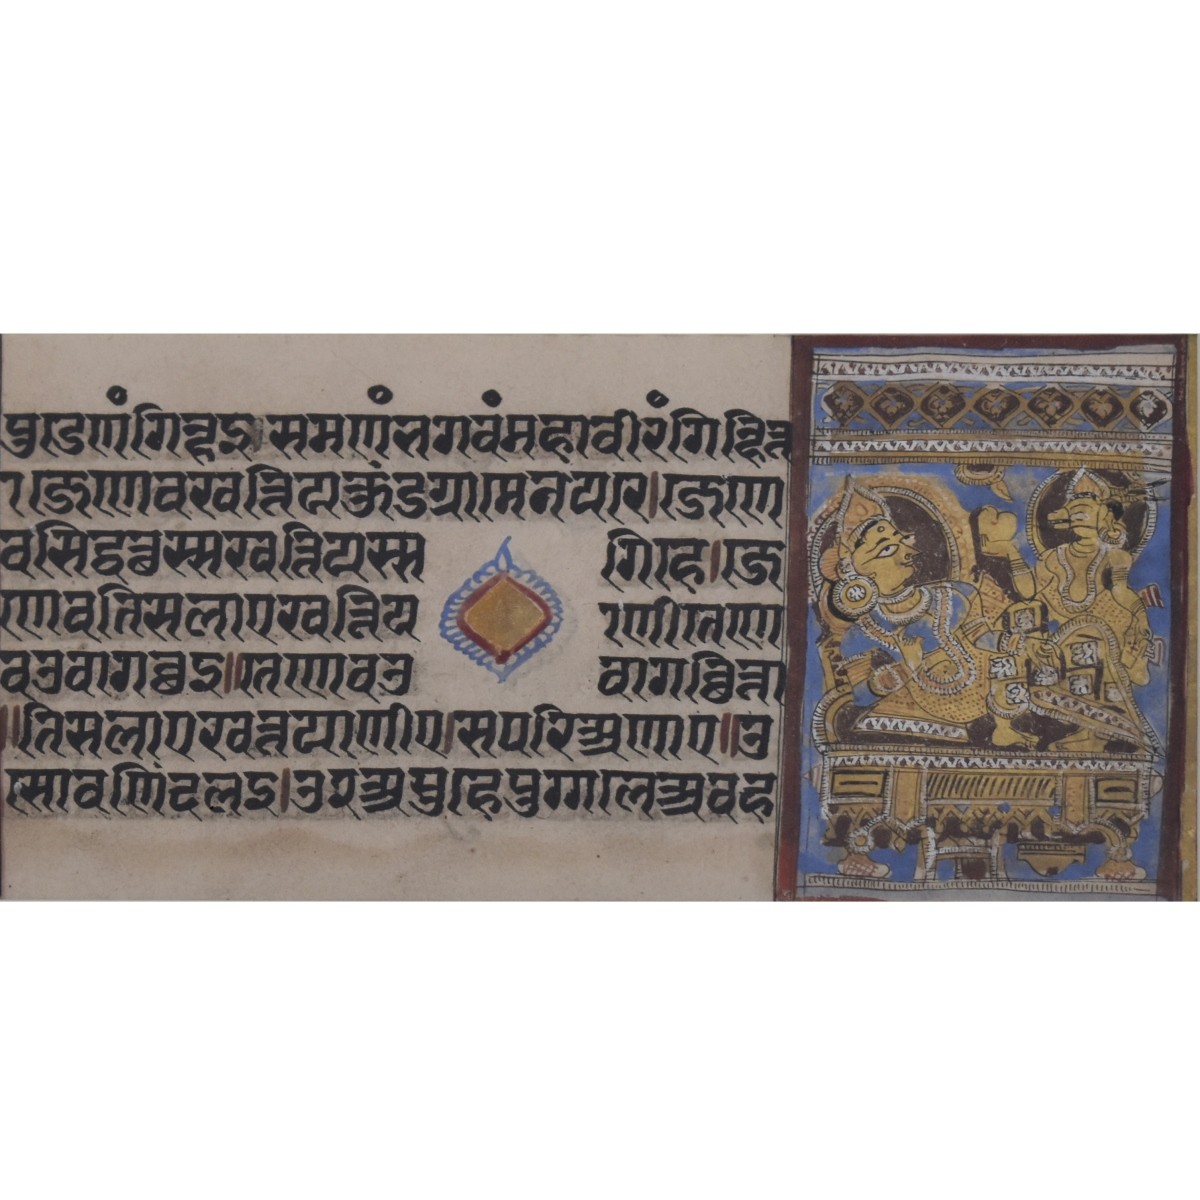 पुडेणं गिह्नइ समणं भगवं महावीरं गिह्नित्ता
जेणेव खत्तियकुंडग्गामे नयरे। जेणे
व सिद्धत्थस्स खत्तियस्स गिहे। जे
णेव तिसलाए खत्तियाणी तेणे
व उवागच्छइ॥ तेणेव उवागच्छित्ता
॥तिसलाए खत्तियाणीए।सपरिअणाए॥उ
सोवणिं दलइ।उ२ असुहे पुग्गले अवह